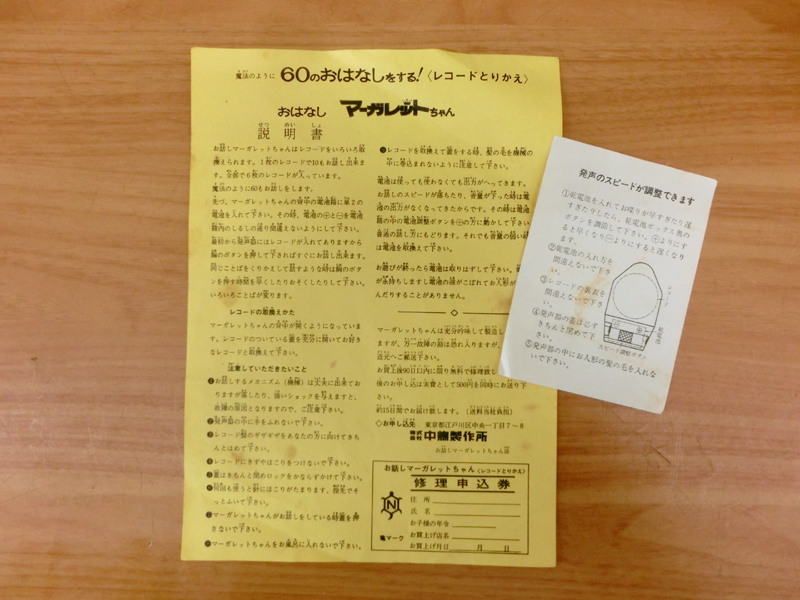 魔法のように 60のおはなしをする!〈レコードとりかえ〉
おはなし マーガレットちゃん
せつ めい しょ
説明書
お話しマーガレットちゃんはレコードをいろいろ取
換えられます。1枚のレコードで10もお話し出来ま
す。全部で6枚のレコードが入っています。
魔法のように60もお話しをします。
先づ、マーガレットちゃんの背中の電池箱に単2の
電池を入れて下さい。その時、電池の⊕と⊖を電池
箱内のしるしの通り間違えないようにして下さい。
最初から発声器にはレコードが入れてありますから
胸のボタンを押して下さればすぐにお話し出来ます。
同じことばをくりかえして話すような時は胸のボタ
ンを押す時間を早くしたりおそくしたりして下さい。
いろいろことばが変ります。
レコードの取換えかた
マーガレットちゃんの背中が開くようになっていま
す。レコードのついている蓋を充分に開いてお好き
なレコードと取換えて下さい。
注意していただきたいこと
❶お話しするメカニズム(機械)は丈夫に出来てお
りますが落したり、強いショックを与えますと、
故障の原因となりますので、ご注意下さい。
❷発声器の中に手をふれないで下さい。
❸レコード盤のギザギザをあなたの方に向けてきち
んとはめて下さい。
❹レコードにきずやほこりをつけないで下さい。
❺蓋はきちんと閉めロックをかならずかけて下さい。
❻何回も使うと針にほこりがたまります。指先でそ
っとふいて下さい。
❼マーガレットちゃんがお話しをしている時蓋を押
さないで下さい。
マーガレットちゃんをお風呂に入れないで下さい。
レコードを取換えて蓋をする時、髪の毛を機械の
中に巻込まれないように注意して下さい。
電池は使っても使わなくても出力がへってきます。
お話しのスピードが落ちたり、音量が下った時は電
池の出力がなくなってきたからです。その時は電池
箱の中の電池調整ボタンを⊕の方に動かして下さい
普通の話し方にもどります。それでも音量の弱い時
は電池を取換えて下さい。
お遊びが終ったら電池は取りはずして下さい。
が永持ちしますし電池の液がこぼれてお人形が
んだりすることがありません。
マーガレットちゃんは充分吟味して製造し
ますが、万一故障の時は恐れ入りますが、
造元へご郵送下さい。
お買上後90日以内に限り無料で修理致し
後のお申し込は実費として500円を同時にお送り下
さい。
約15日間でお届け致します。〔送料当社負担〕
◇お申し込先 東京都江戸川区中央一丁目7〜8
株式会社 中嶋製作所
お話しマーガレットちゃん係
お話しマーガレットちゃん〈レコードとりかえ〉
修理申込券
住所
氏名
お子様の年令
お買上げ店名
お買上げ月日 月 日
N
亀マーク
発声のスピードが調整できます
①乾電池を入れてお喋りが早すぎたり遅
すぎたりしたら、乾電池ボックス奥の
ボタンを調節して下さい。⊕よりにす
ると早くなり⊖よりにすると遅くなり
ます。
②乾電池の入れ方を
間違えないで下さ
い。
③レコードの裏表を
間違えないで下さ
い。
④発声器の蓋は必ず
きちんと閉めて下
さい。
⑤発声器の中にお人形の髪の毛を入れな
いで下さい。
レコード
乾電池
スピード調整ボタン